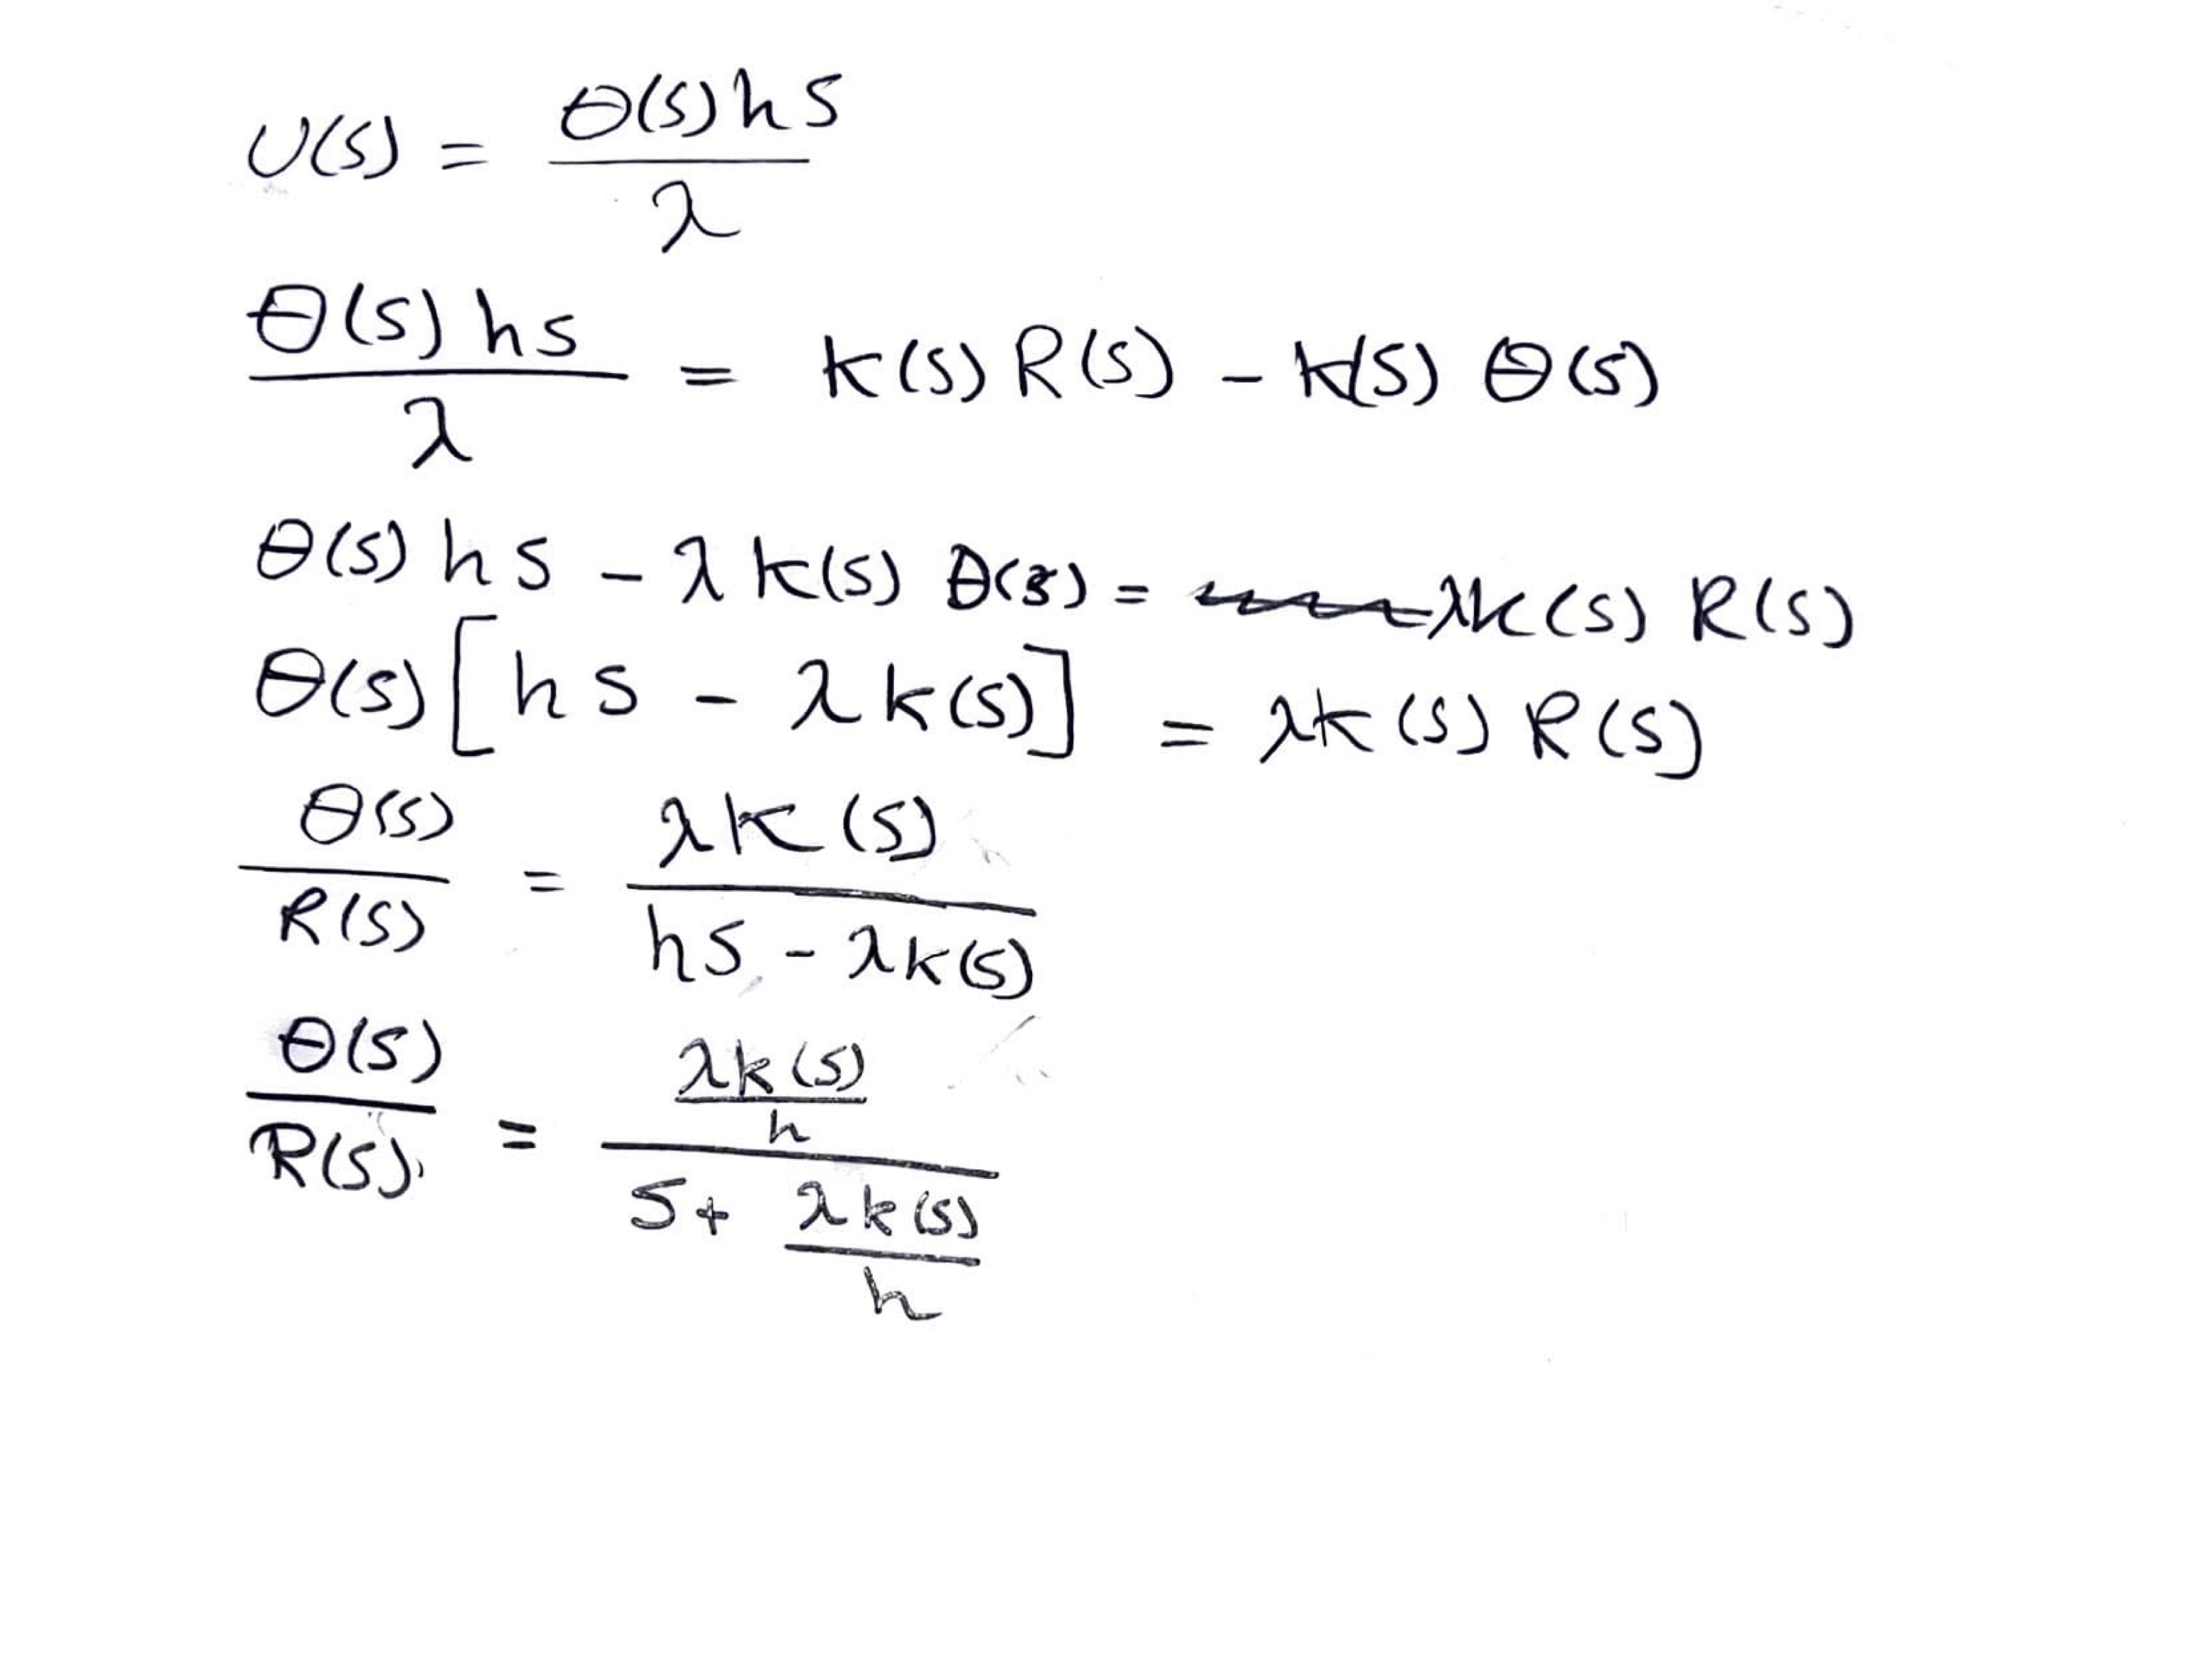 U(s) = Θ(s)hs / λ
Θ(s) hs / λ = K(s) R(s) - K(s) Θ(s)
Θ(s) hs - λ K(s) Θ(s) = λK(s) R(s)
Θ(s) [hs - λ K(s)] = λK(s) R(s)
Θ(s) / R(s) = λK(s) / hs - λK(s)
Θ(s) / R(s) = λk(s)/h / s + λk(s)/h